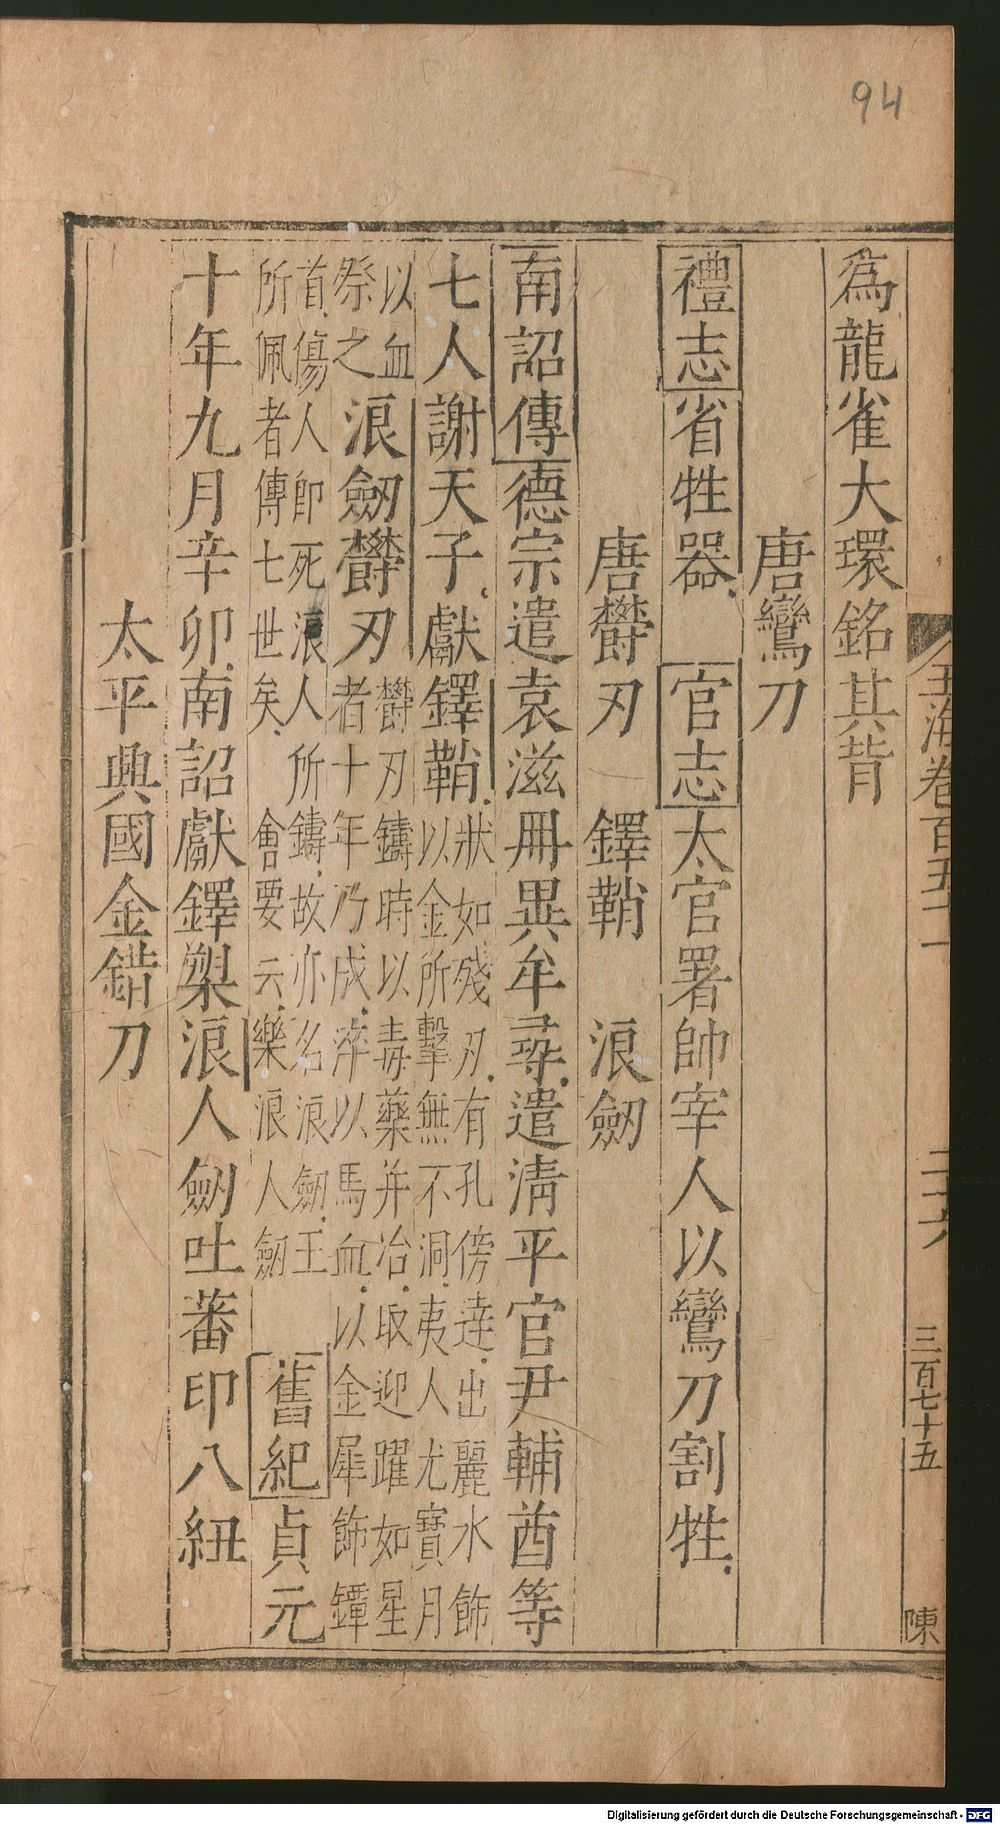 94
玉海卷百五十一 二十六 三百七十五 陳
爲龍雀大環銘其背
唐鸞刀
禮志省牲器 官志太官署帥宰人以鸞刀割牲
唐欝刃 鐸鞘 浪劔
南詔傳德宗遣袁滋冊異牟尋遣淸平官尹輔酋等
七人謝天子獻鐸鞘
狀如殘刃有孔傍達出麗水飾
以金所擊無不洞夷人尤寶月
以血
祭之
浪劔欝刃
欝刃鑄時以毒藥并冶取迎躍如星
者十年乃成淬以馬血以金犀飾鐔
首傷人即死浪人所鑄故亦名浪劔王
所佩者傳七世矣 會要云樂浪人劔
舊紀貞元
十年九月辛卯南詔獻鐸槊浪人劔吐蕃印八紐
太平興國金錯刀
Digitalisierung gefördert durch die Deutsche Forschungsgemeinschaft - DFG